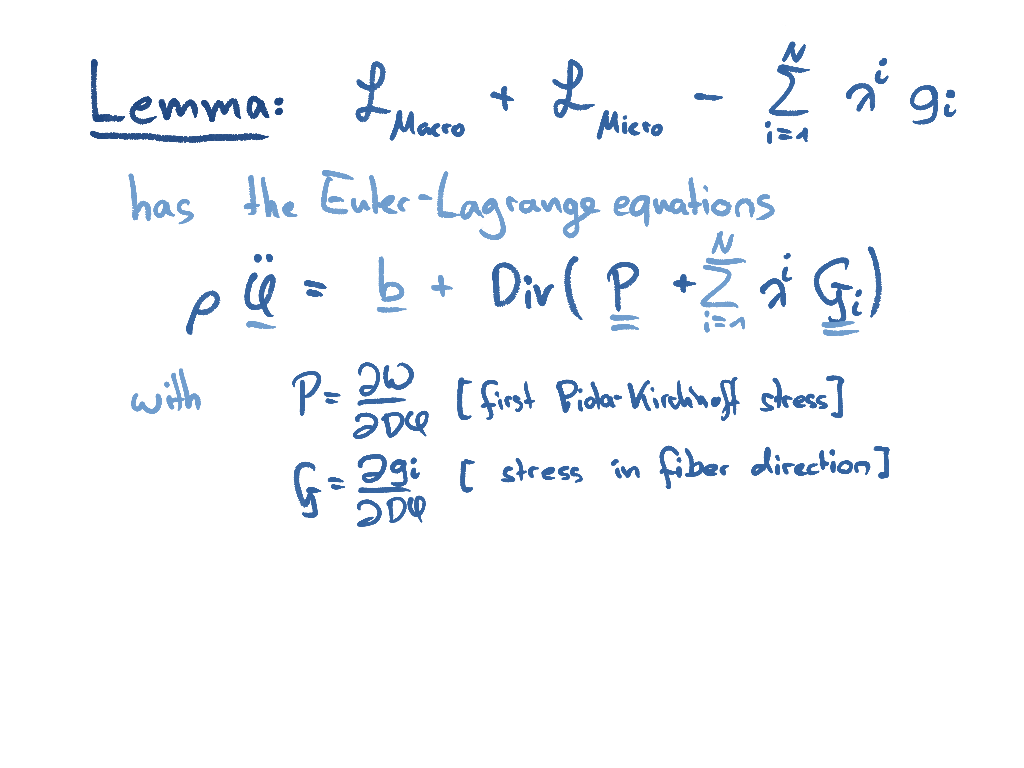 Lemma: ℒ_Macro + ℒ_Micro - ∑_{i=1}^{N} λ^i g_i
has the Euler-Lagrange equations
ρ φ̈ = b + Div( P + ∑_{i=1}^{N} λ^i G_i )
with P = ∂W/∂Dφ [first Piola-Kirchhoff stress]
G = ∂g_i/∂Dφ [ stress in fiber direction]